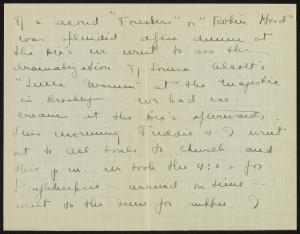 of a second "Foresters" or "Robin Hood"
was splendid. After dinner at
the Dix's we went to see the
dramatization of Louisa Alcott's
"Little Women" at the Majestic
in Brooklyn. We had ice-
cream at the Dix's afterwards.
This morning Freddie & I went
at to All Souls to church and
this p.m. we took the 4:00 for
Poughkeepsie - arrived on time -
went to the Inn for supper. I